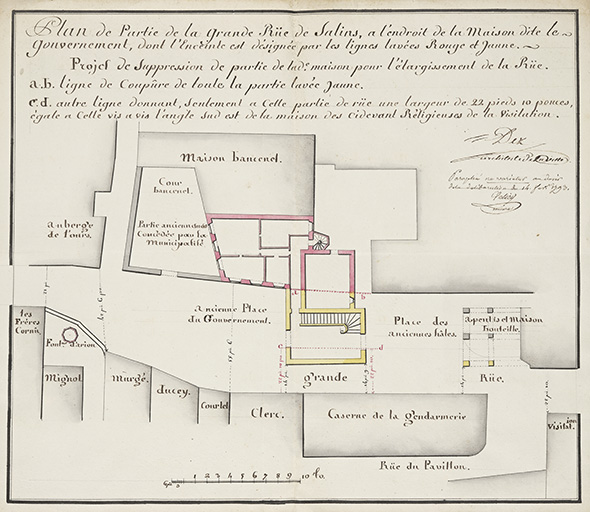 Plan de Partie de la grande Rüe de Salins, a l'endroit de la Maison dite le
Gouvernement, dont l'Enceinte est désignée par les lignes lavées Rouge et Jaune.
Projet de Suppression de partie de lad.e maison pour l'élargissement de la Rüe.
a.b. ligne de Coupûre de toute la partie lavée Jaune.
c.d. autre ligne donnant, seulement a Cette partie de rüe une largeur de 22 pieds 10 pouces,
égale a Celle vis a vis l'angle sud est de la maison des Cidevant Réligieuses de la Visitation.
Dez
architecte
Maison bancenel.
Cour
bancenel.
Partie anciennement
Concédée par la
Municipalité
auberge
de l'ours.
ancienne Place
du Gouvernement.
Place des
anciennes hales.
apentis et Maison
bouteille.
les
Frères
Cornis
Font. d'arion
Mignot
Murgé.
ducey.
Courlet
Clerc.
grande
Rüe.
Caserne de la gendarmerie
Visitat
ion
Rüe du Pavillon.
1 2 3 4 5 6 7 8 9 10 to.
a
b
c
d